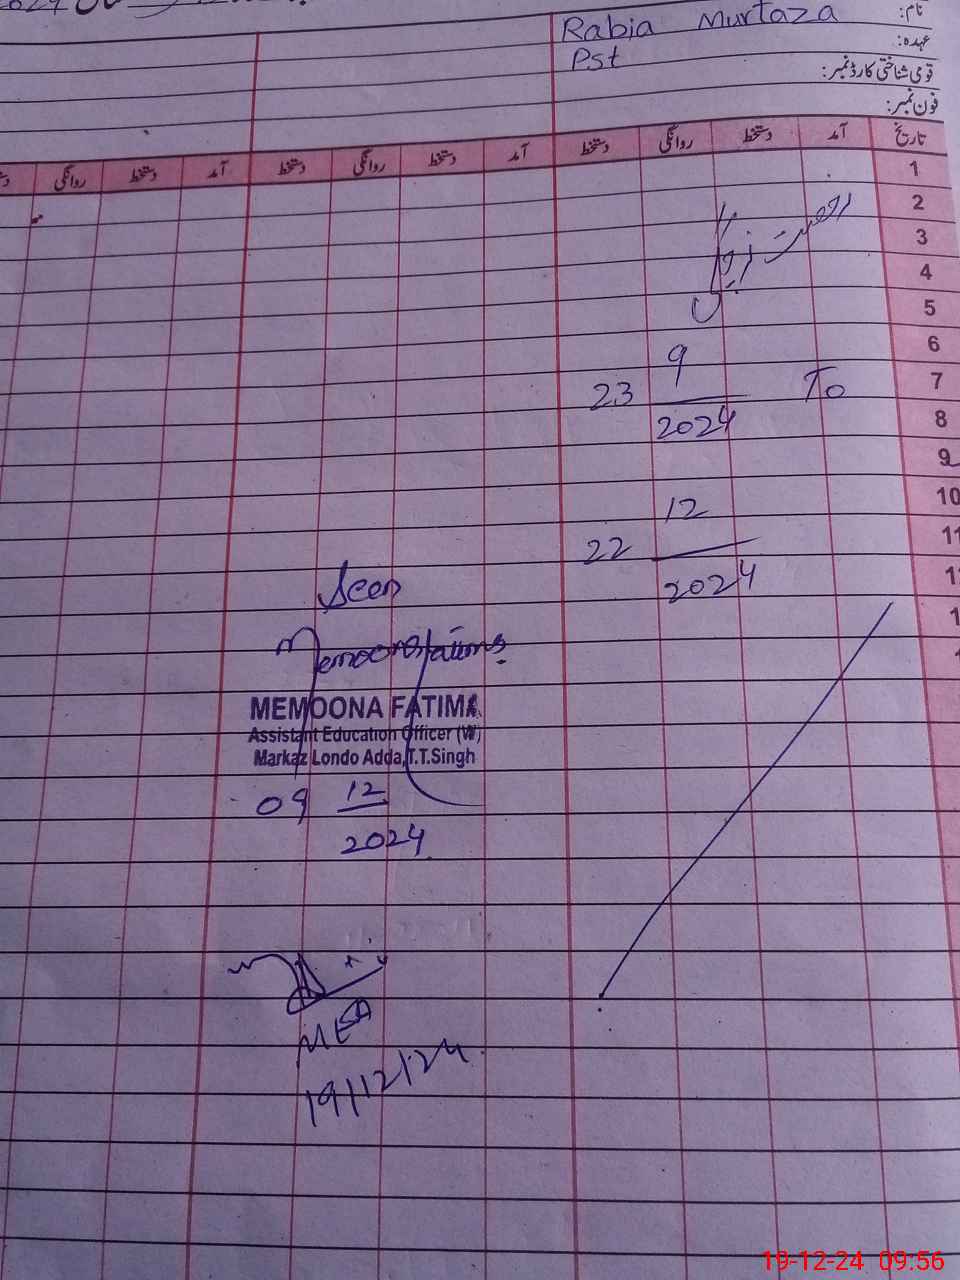 2024
نام:
Rabia Murtaza
عہدہ:
Pst
قومی شناختی کارڈ نمبر:
فون نمبر:
تاریخ آمد دستخط روانگی دستخط آمد دستخط روانگی دستخط آمد دستخط روانگی
1
2
3
4
5
6
7
8
9
10
11
رخصت
23 9 To
2024
22 12
2024
Seen
Memoona Fatima
MEMOONA FATIMA
Assistant Education Officer (W)
Markaz Londo Adda, T.T.Singh
09 12
2024
MEA
19/12/24
19-12-24 09:56